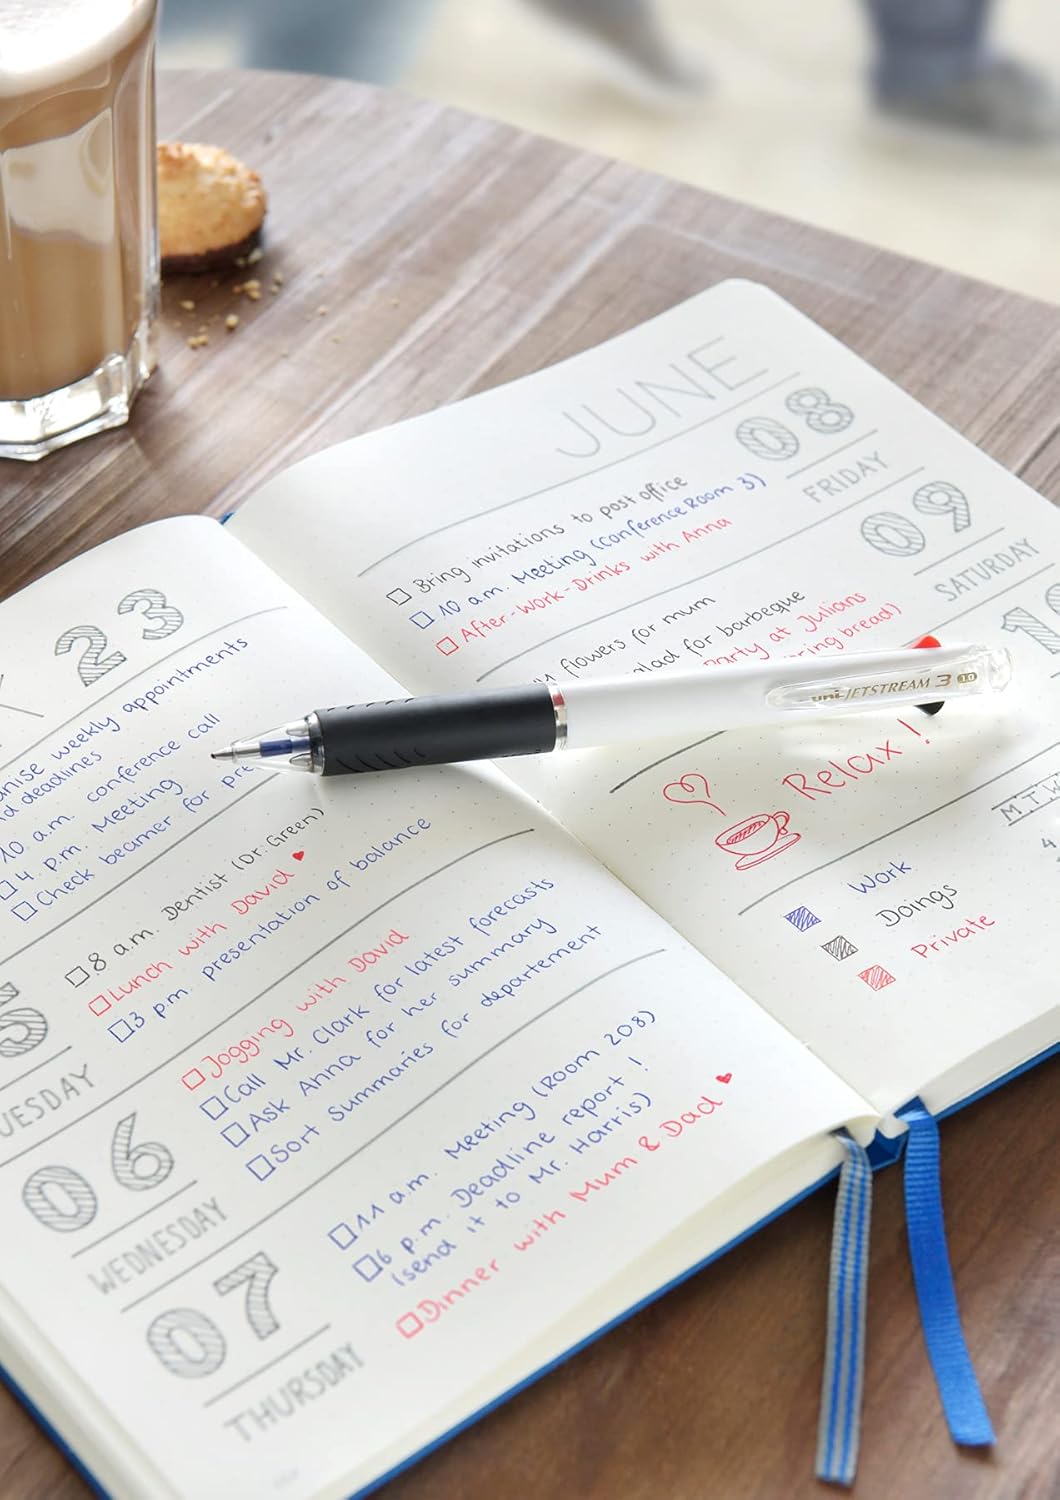 23
anise weekly appointments
deadlines
10 a.m. conference call
4 p.m. Meeting
Check beamer for pre
5
UESDAY
8 a.m. Dentist (Dr. Green)
Lunch with David
3 p.m. presentation of balance
06
WEDNESDAY
Jogging with David
Call Mr. Clark for latest forecasts
Ask Anna for her summary
Sort Summaries for departement
07
THURSDAY
11 a.m. Meeting (Room 208)
6 p.m. Deadline report!
(send it to Mr. Harris)
Dinner with Mum & Dad
JUNE
08
FRIDAY
Bring invitations to post office
10 a.m. Meeting (Conference Room 3)
After-Work-Drinks with Anna
09
SATURDAY
flowers for mum
alad for barbeque
Party at Julians
ring bread)
uni JETSTREAM 3 1.0
1
Relax!
M T W
4
Work
Doings
Private